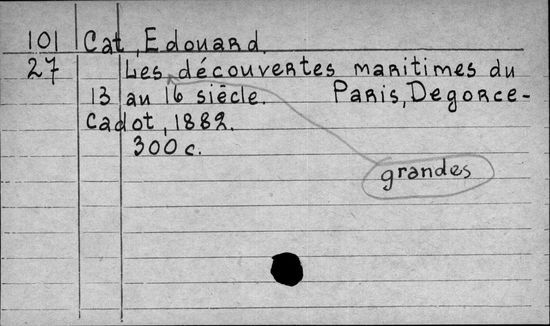 101 Cat, Edouard.
27 Les découvertes maritimes du
13 au 16 siècle. Paris, Degorce-
Cadot, 1882.
300 c.
grandes